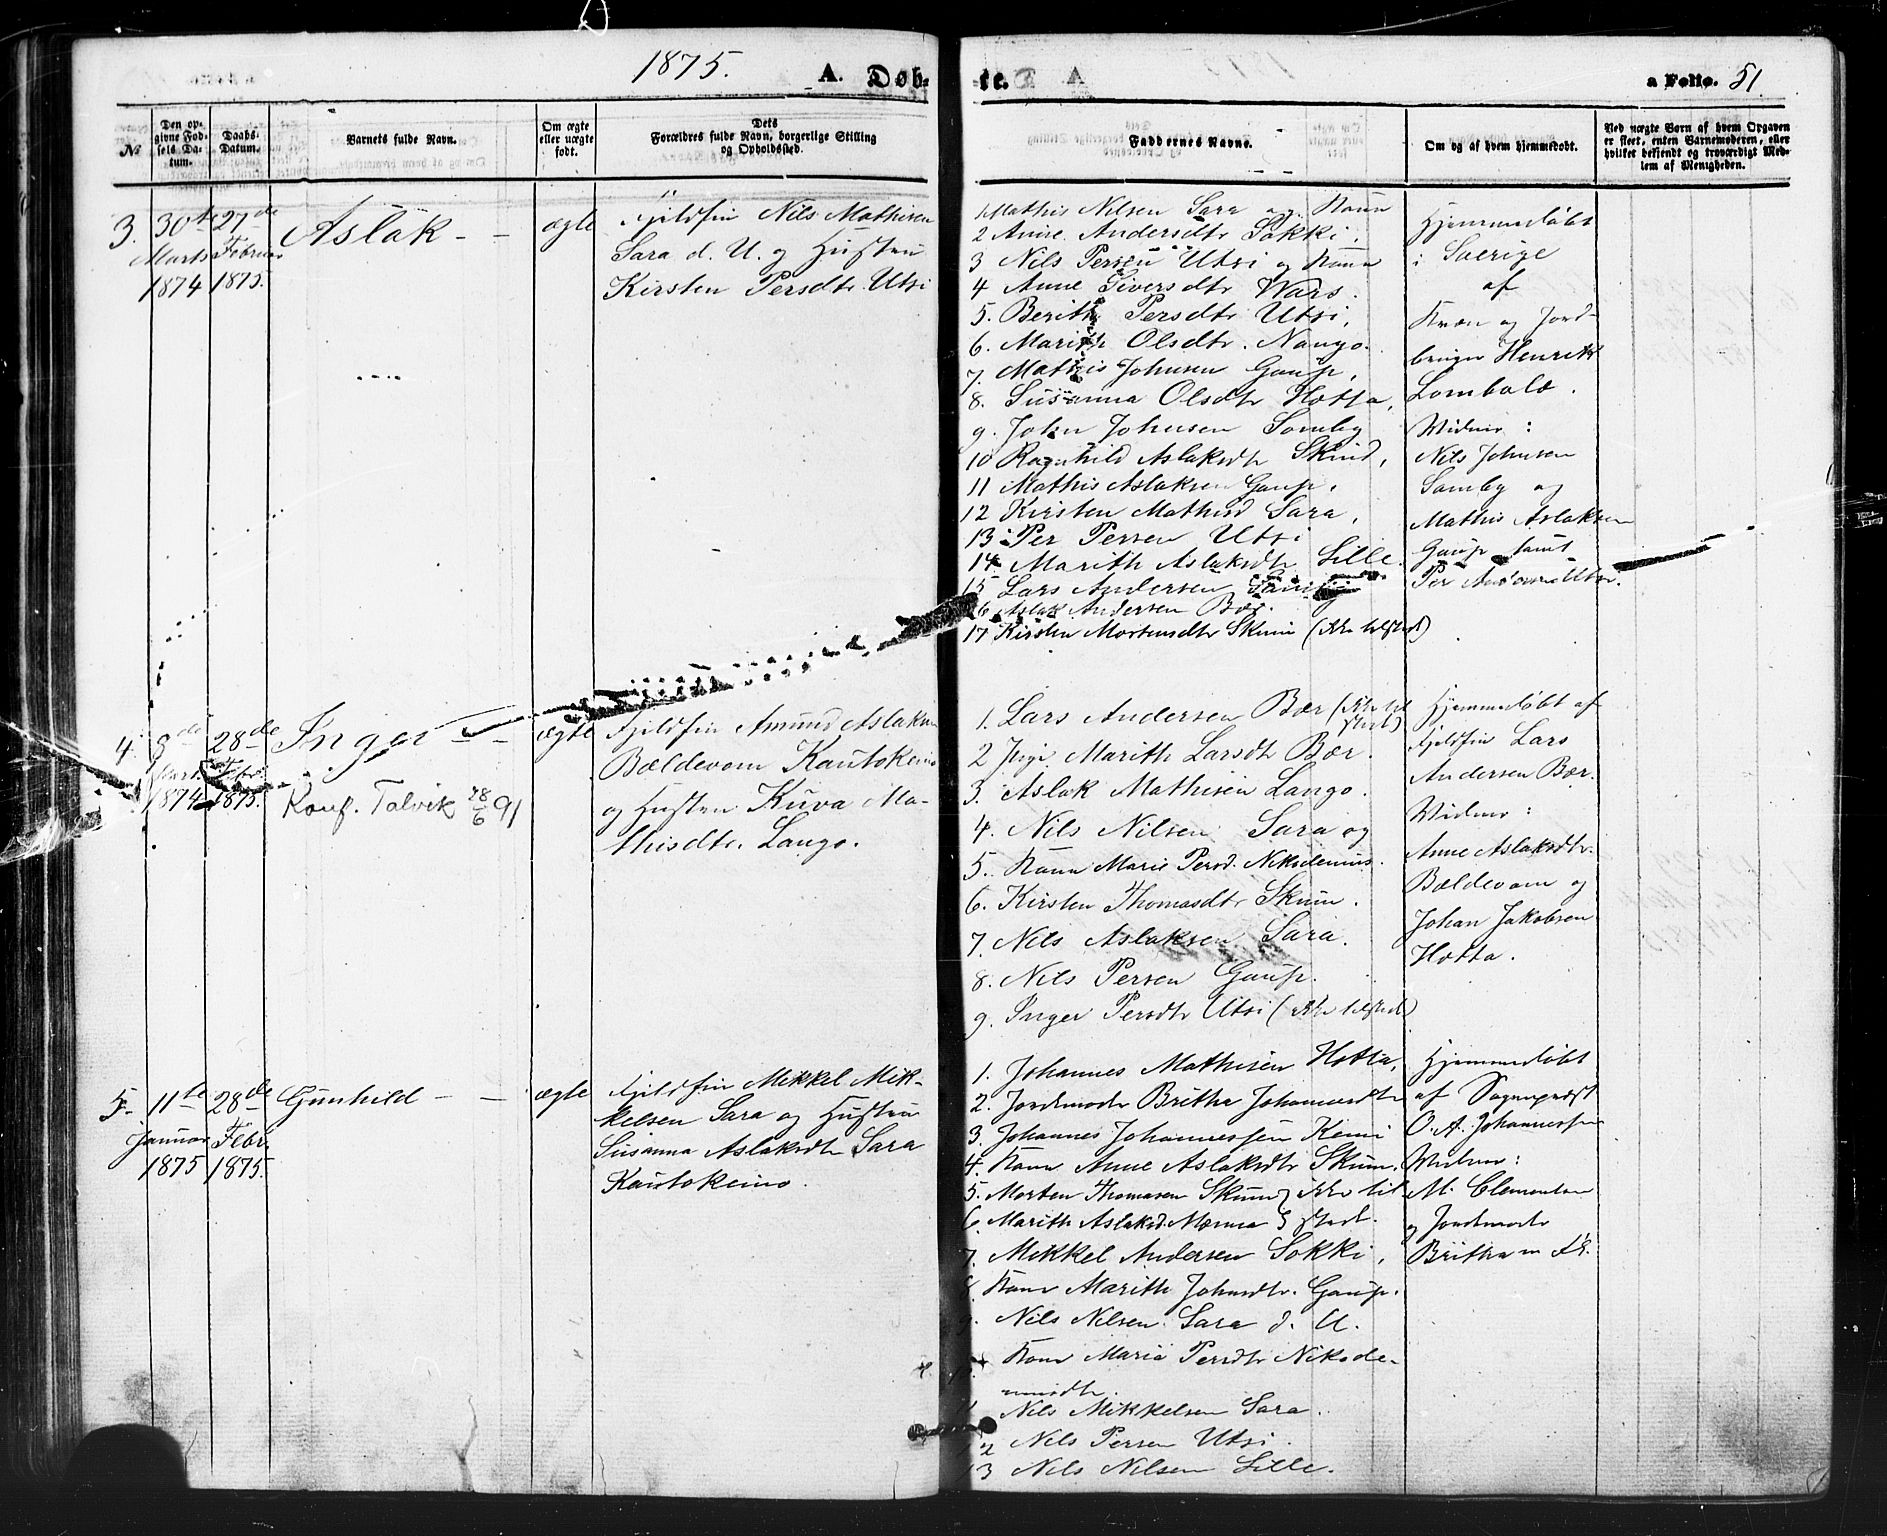 1875.
A. Døb-
te.
a Folio. 51.
No
Den op-
givne Fød-
sels Da-
tum.
Daabs-
Datum.
Barnets fulde Navn.
Om ægte
eller uægte
født.
Dets
Forældres fulde Navn, borgerlige Stilling
og Opholdssted.
Faddernes Navne.
Om og af hvem hjemmedøbt.
Ved uægte Børn af hvem Opgaven
er skeet, enten Barnemoderen, eller
hvilket bekjendt og troværdigt Med-
lem af Menigheden.
3. 30te 27de Aslak - - ægte
Marts Februar
1874 1875.
Fjeldfin Nils Mathisen
Sara d. U. og Hustru
Kirsten Persdtr. Utsi
1 Mathis Nilsen Sara og Kone
2 Anne Andersdtr Sokki,
3 Nils Persen Utsi og Kone
4 Anne Siversdtr Wars.
5. Berith Persdtr Utsi,
6. Marith Olsdtr. Nango.
7. Mathis Johnsen Gaup,
8. Susanna Olsdtr Hætta,
9. John Johnsen Somby
10 Ragnhild Aslaksdtr Skind,
11 Mathis Aslaksen Gaup,
12 Kirsten Mathisd Sara,
13 Per Persen Utsi
14 Marith Aslaksdtr Lille.
15 Lars Andersen
16 Aslak Andersen Bær.
17 Kirsten Mortensdtr Skum (ikke tilstede)
Hjemmedøbt
i Sverige
af
Kvæn og Jord-
bruger Henrik
Lombola.
Widner:
Nils Johnsen
Somby og
Mathis Aslaksen
Gaup samt
Per Andersen Utsi.
4. 8de 28de Inger - - ægte
Marts Febr.
1874 1875.
Konf. Talvik 28/6 91
Fjeldfin Amund Aslaksen
Bældevom Kautokeino
og Hustru Kuva Ma-
thisdtr. Lango.
1. Lars Andersen Bær (ikke til
stede)
2 Inge Marith Larsdtr Bær.
3. Aslak Mathisen Lango.
4. Nils Nilsen Sara og
5. Kone Marie Persd. Nikodemus.
6. Kirsten Thomasdtr Skum.
7. Nils Aslaksen Sara.
8. Nils Persen Gaup.
9. Inger Persdtr Utsi (ikke tilstede)
Hjemmedøbt af
Fjeldfin Lars
Andersen Bær.
Widner:
Anne Aslaksdtr.
Bældevom og
Johan Jakobsen
Hætta.
5. 11te 28de Gunhild - - ægte
Januar Febr.
1875 1875.
Fjeldfin Mikkel Mik-
kelsen Sara og Hustru
Susanna Aslaksdtr Sara
Kautokeino.
1. Johannes Mathisen Hætta,
2. Jordmoder Britha Johannesdtr
3. Johannes Johannessen Kemi
4. Kone Anne Aslaksdtr Skum.
5. Morten Thomasen Skum } ikke til-
6. Marith Aslaksd. Mænna } stede.
7. Mikkel Andersen Sokki,
8. Kone Marith Johnsdtr. Gaup.
9. Nils Nilsen Sara d. U.
Kone Maria Persdtr Nikode-
musdtr.
Nils Mikkelsen Sara.
12 Nils Persen Utsi.
13 Nils Nilsen Lille.
Hjemmedøbt
af Sognepræst
O. A. Johannessen
Widner:
M. Clementsen
og Jordmoder
Britha